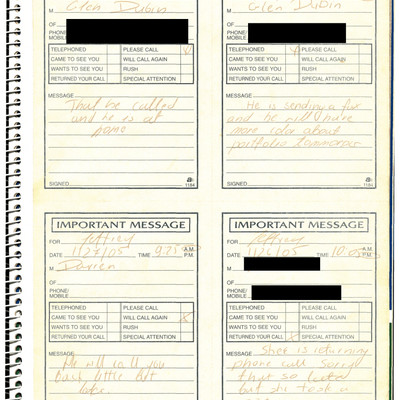 M Glen Dubin
OF
PHONE/
MOBILE
TELEPHONED PLEASE CALL
CAME TO SEE YOU WILL CALL AGAIN
WANTS TO SEE YOU RUSH
RETURNED YOUR CALL SPECIAL ATTENTION
MESSAGE
That he called
and he is at
home
SIGNED 1184
M Glen Dubin
OF
PHONE/
MOBILE
TELEPHONED PLEASE CALL
CAME TO SEE YOU WILL CALL AGAIN
WANTS TO SEE YOU RUSH
RETURNED YOUR CALL SPECIAL ATTENTION
MESSAGE
He is sending a fax
and he will have
more about
portfolio tomorrow
SIGNED 1184
IMPORTANT MESSAGE
FOR Jeffrey
DATE 1/27/05 TIME 9:25 A.M. P.M.
M Darren
OF
PHONE/
MOBILE
TELEPHONED PLEASE CALL
CAME TO SEE YOU WILL CALL AGAIN
WANTS TO SEE YOU RUSH
RETURNED YOUR CALL SPECIAL ATTENTION
MESSAGE
He will call you
back little bit
later
IMPORTANT MESSAGE
FOR Jeffrey
DATE 1/26/05 TIME 10:05 A.M. P.M.
M
OF
PHONE/
MOBILE
TELEPHONED PLEASE CALL
CAME TO SEE YOU WILL CALL AGAIN
WANTS TO SEE YOU RUSH
RETURNED YOUR CALL SPECIAL ATTENTION
MESSAGE
She is returning
phone call sorry
that so late
but she took a